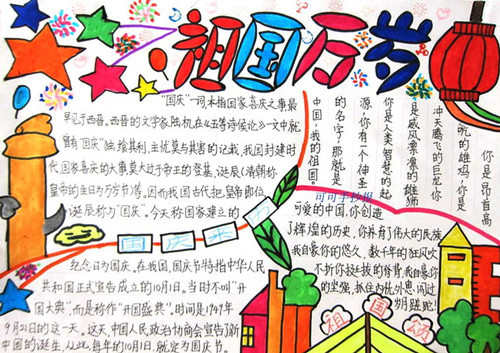 祖国万岁
"国庆"一词,本指国家喜庆之事最
早见于西晋。西晋的文学家陆机在《五等诸侯论》一文中就
曾有"国庆独飨其利,主忧莫与其害"的记载、我国封建时
代、国家喜庆的大事莫大过于帝王的登基、诞辰(清朝称
皇帝的生日为万岁节)等。因而我国古代把皇帝即位、
诞辰称为"国庆"。今天称国家建立的
国庆来历
纪念日为国庆。在我国,国庆节特指中华人民
共和国正式宣告成立的10月1日。当时不叫"开
国大典",而是称作"开国盛典"。时间是1949年
9月21日的这一天。这天,中国人民政治协商会宣告了新
中国的诞生,从此,每年的10月1日就定为国庆节。
你是昂首高
吭的雄鸡,你是
冲天腾飞的巨龙,你
是威风凛凛的雄狮
你是人类智慧的起
源,你有一个神圣
的名字,那就是
中国,我的祖国。
可可手抄报
可爱的中国,你创造
了辉煌的历史,你养育了伟大的民族
我自豪你的悠久,数千年的狂风吹
不折你挺拔的脊背,我自豪你
的坚强,抵住内忧外患闯过
岁月蹉跎!
祖国颂